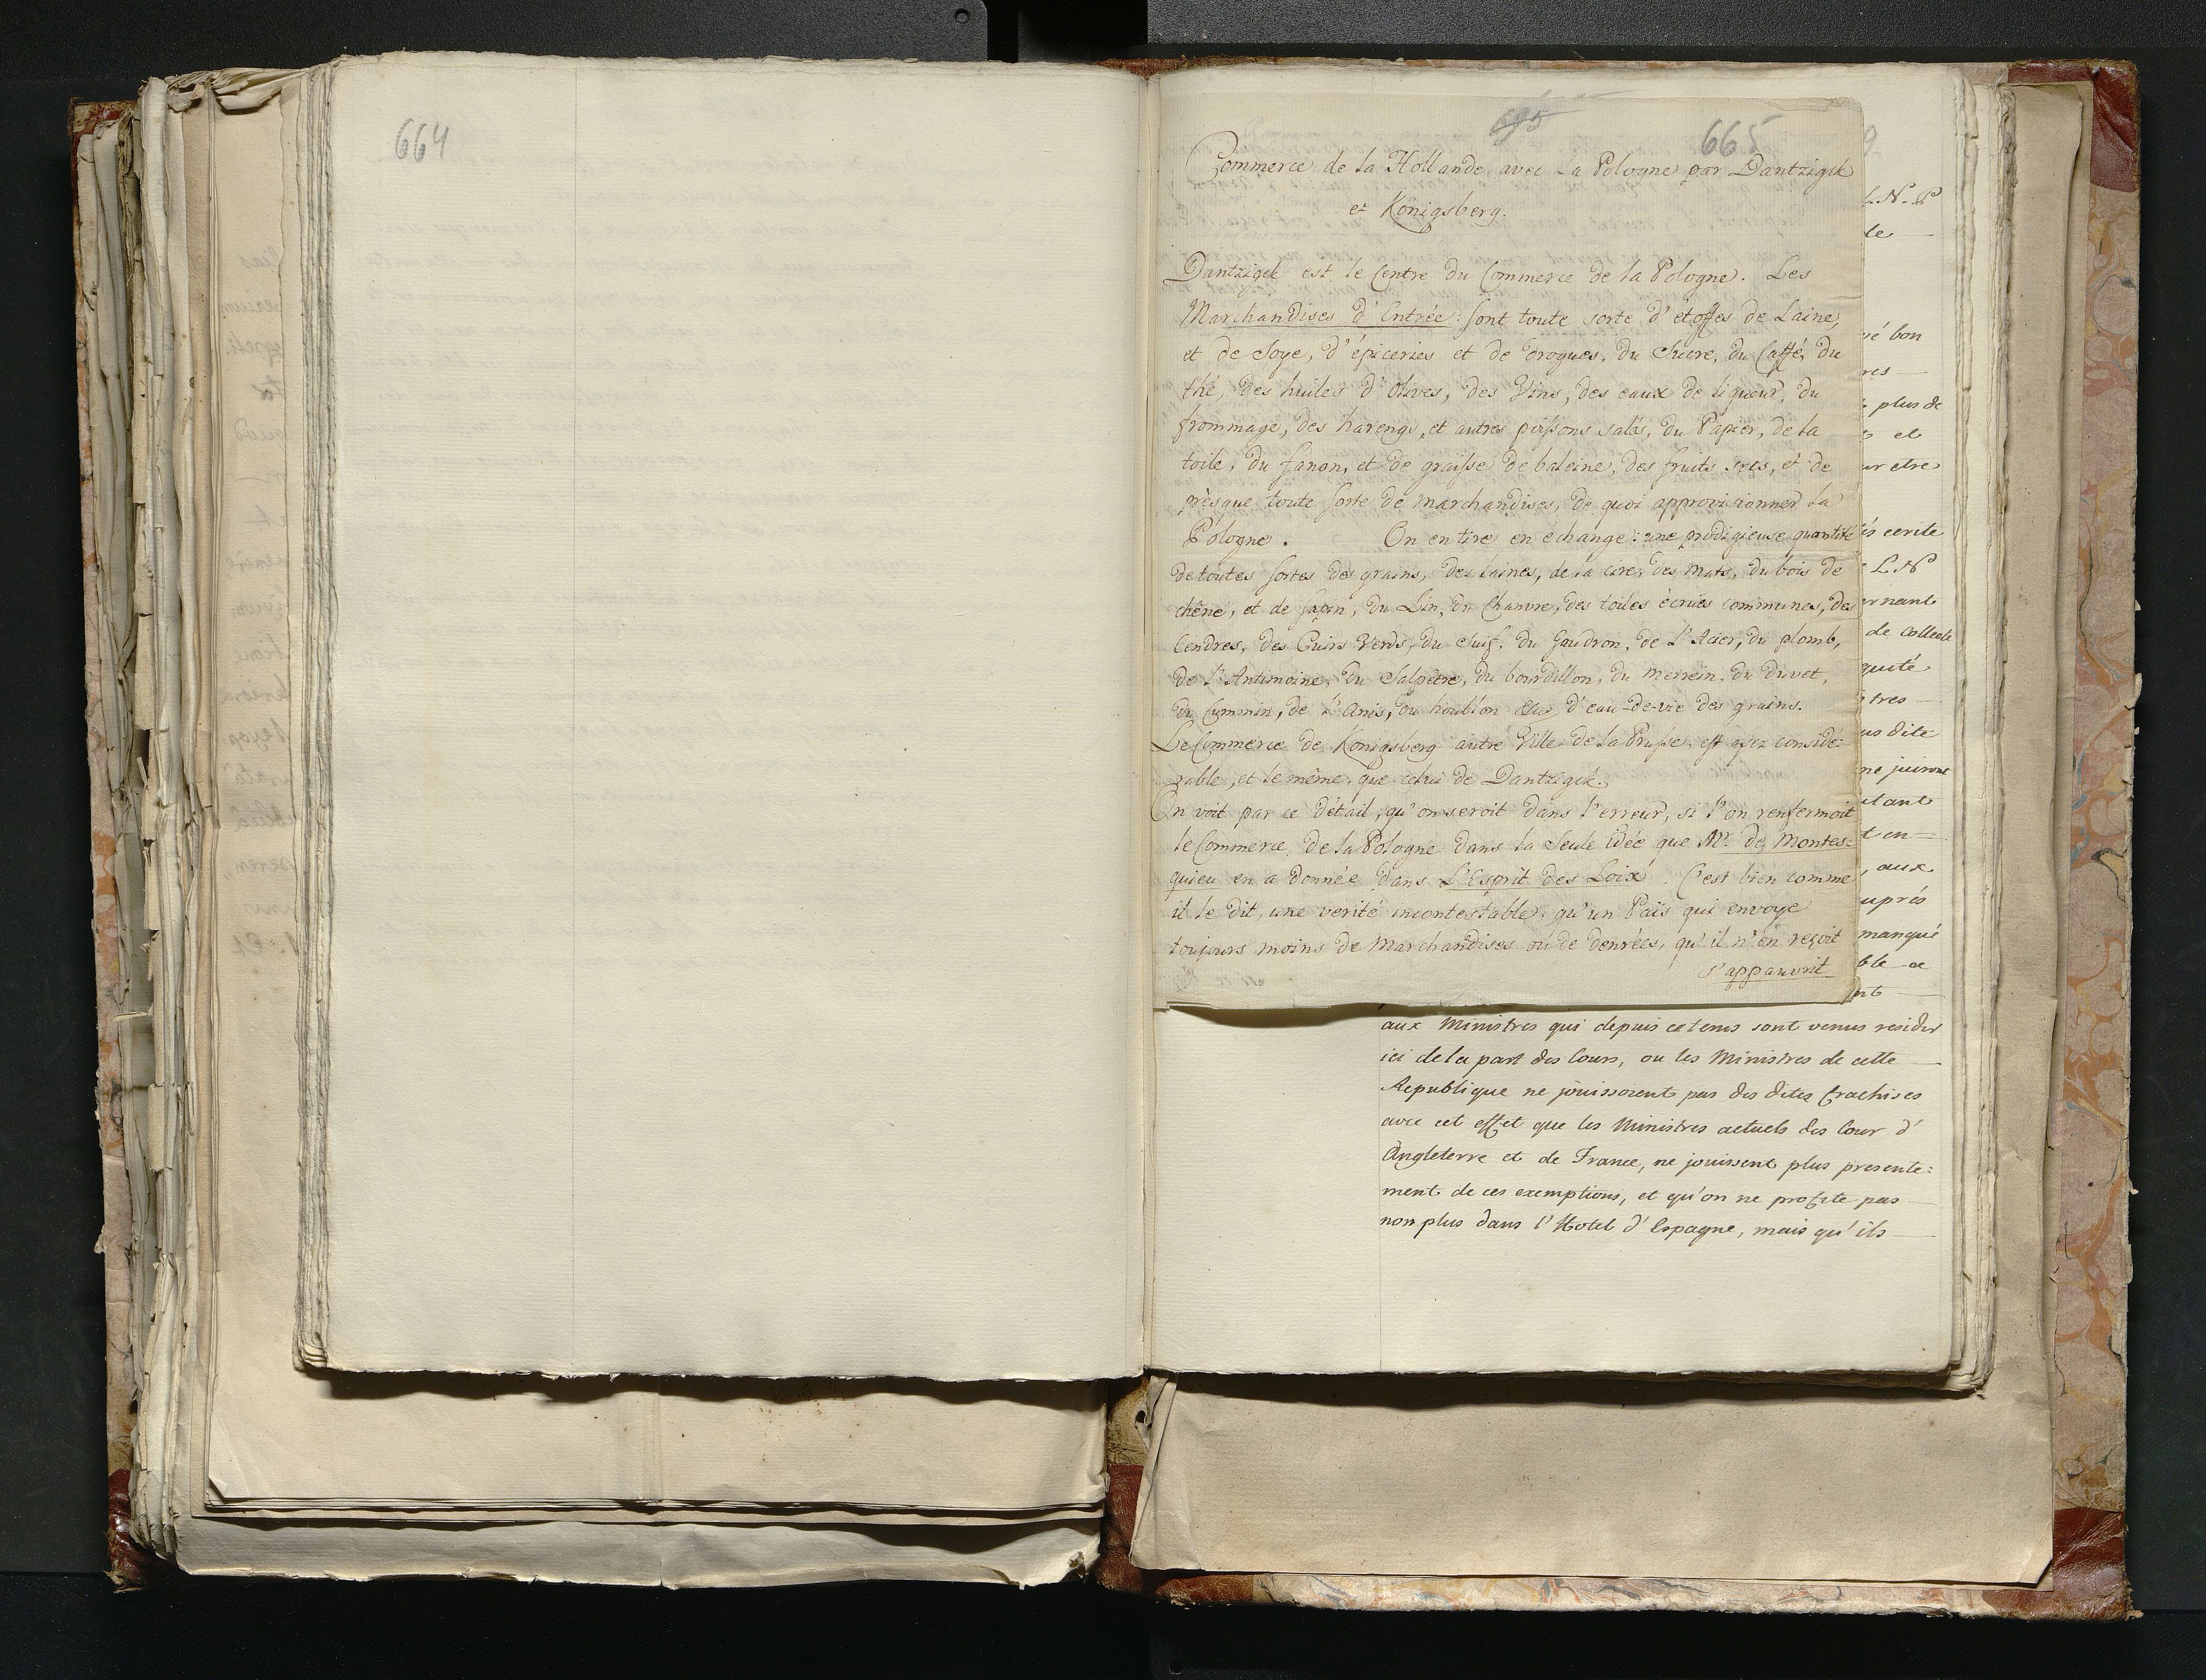 664
695
665
Commerce de la Hollande avec la Pologne par Dantzigck
et Königsberg.
Dantzigck est le Centre du Commerce de la Pologne. Les
Marchandises d'Entrée: sont toute sorte d'etoffes de Laine,
et de Soye, d'épiceries et de drogues, du Sucre, du Caffé, du
thé, des huiles d'Olives, des Vins, des eaux de liqueur, du
frommage, des harengs, et autres poissons salés, du Papier, de la
toile, du fanon, et de graisse de baleine, des fruits secs, et de
prèsque toute sorte de marchandises, de quoi approvisionner la
Pologne. On en tire en échange: une prodigieuse quantité
de toutes sortes des grains, des laines, de la cire, des mats, du bois de
chêne, et de sapin, du Lin, du Chanvre, des toiles écrues communes, des
Cendres, des Cuirs Verds, du Suif, du Gaudron, de l'Acier, du plomb,
de l'Antimoine, du Salpetre, du bourdillon, du merrein, du duvet,
du Cummin, de l'Anis, du houblon d'eau-de-vie des grains.
Le Commerce de Königsberg autre Ville de la Prusse est assez considé=
rable, et le même, que celui de Dantzigck.
On voit par ce détail, qu'on seroit dans l'erreur, si l'on renfermoit
le Commerce de la Pologne dans la Seule idée que Mr. de Montes=
quieu en a donnée dans L'Esprit des Loix. C'est bien comme
il le dit, une verité incontestable, qu'un Païs qui envoye
toujours moins de marchandises ou de denrées, qu'il n'en reçoit
s'appauvrit
L.N.P
le
vé bon
res
plus de
et
ur etre
is cerite
L.N
ernant
de collecte
quité
tres
us dite
ne juirons
utant
t en
, aux
uprés
manqué
ble ce
nt
aux Ministres qui depuis ce tems sont venus resider
ici de la part des Cours, ou les Ministres de cette
Republique ne jouissoient pas des dites frachises
avec cet effet que les Ministres actuels des Cour d'
Angleterre et de France, ne jouissent plus presente=
ment de ces exemptions, et qu'on ne profite pas
non plus dans l'Hotel d'Espagne, mais qu'ils